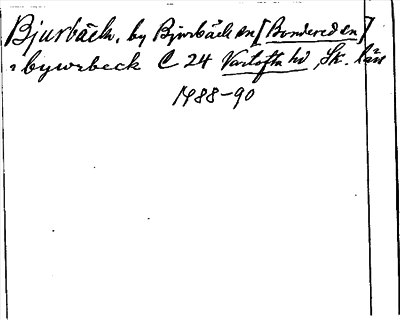 Bjurbäck, by Bjurbäck sn [Bondereden]
i bywrbeck C 24 Vartofta hd, Sk. län
1488-90